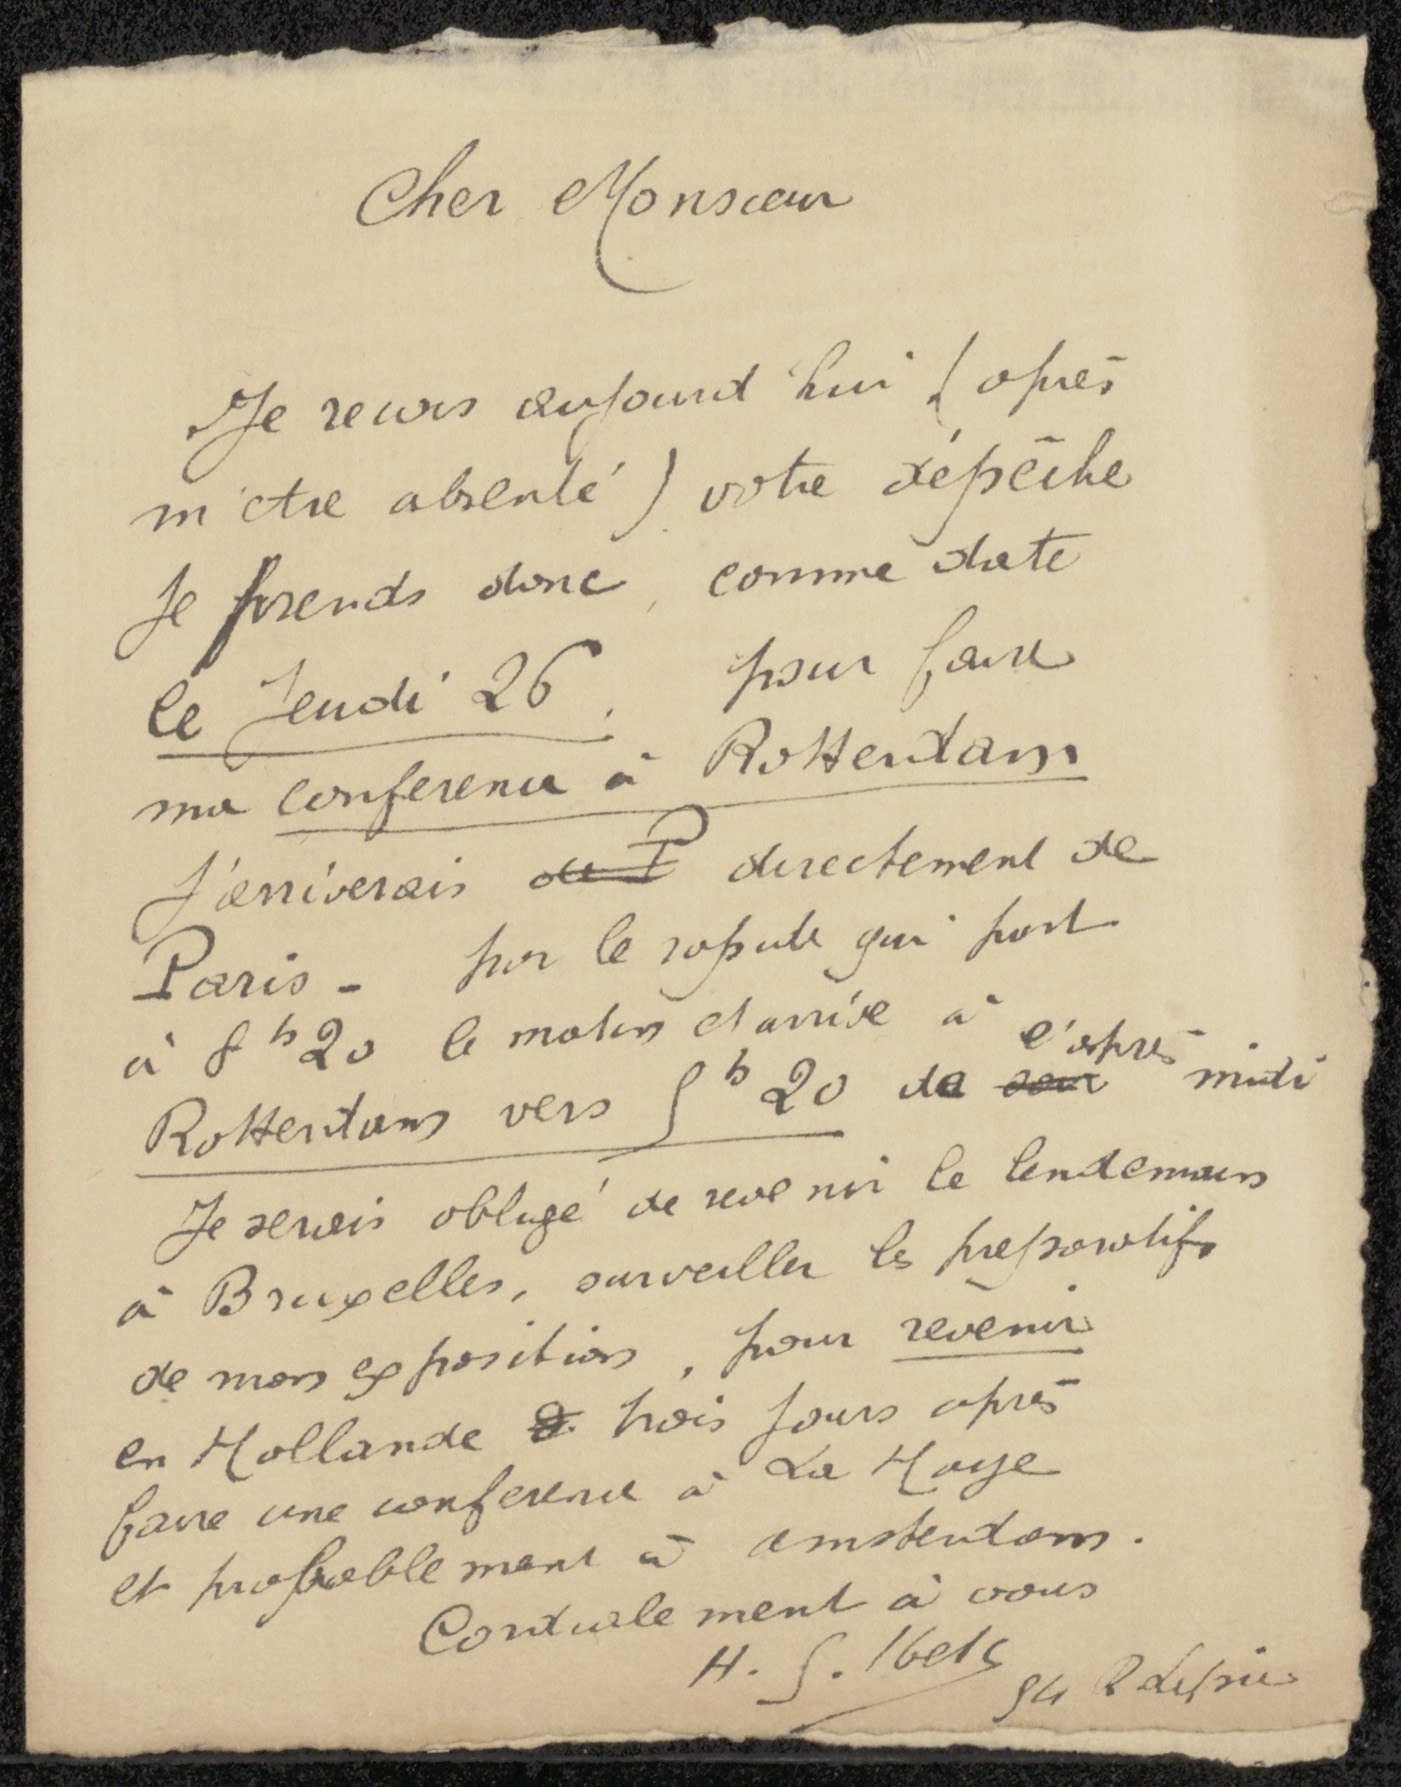 Cher Monsieur
Je recois aujourd'hui (après
m'être absenté) votre dépêche
Je prends donc, comme date
le Jeudi 26, pour faire
ma conference à Rotterdam
J'arriverais de P directement de
Paris - par le rapide qui part
à 8 h 20 le matin et arrive à
Rotterdam vers 5 h 20 de soir l'après midi
Je serais obligé de revenir le lendemain
à Bruxelles, surveiller les preparatifs
de mon exposition, pour revenir
en Hollande trois jours après
faire une conference à La Haye
et probablement à amsterdam.
Cordialement à vous
H. S. Ibels